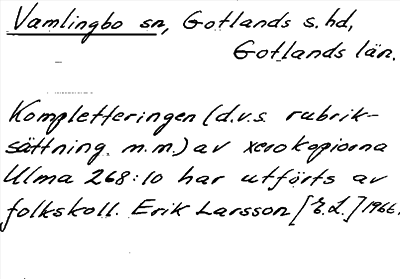 Vamlingbo sn, Gotlands s. hd,
Gotlands län.
Kompletteringen (d.v.s. rubrik-
sättning m.m.) av xerokopiorna
Ulma 268:10 har utförts av
folkskoll. Erik Larsson [E.L.] 1966.